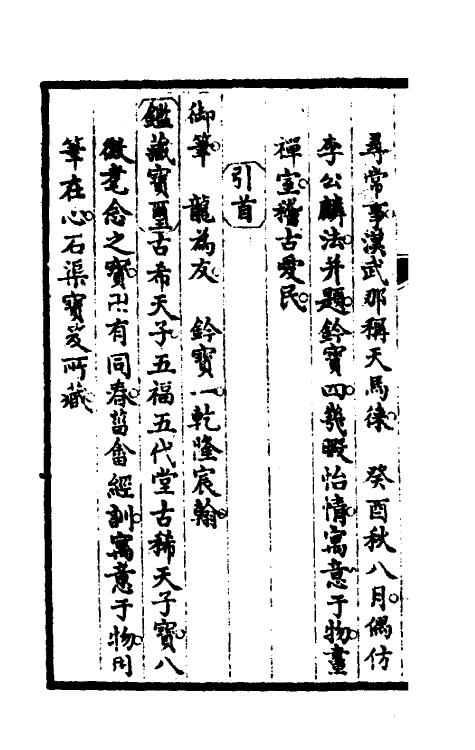 尋常事漢武那稱天馬徠　癸酉秋八月偶仿
李公麟法并題鈐寶四幾暇怡情寓意于物畫
禪室稽古愛民
引首
御筆　龍為友　鈐寶一乾隆宸翰
鑑藏寶璽古希天子五福五代堂古稀天子寶八
徵耄念之寶卍有同春菑畬經訓寓意于物用
筆在心石渠寶笈所藏